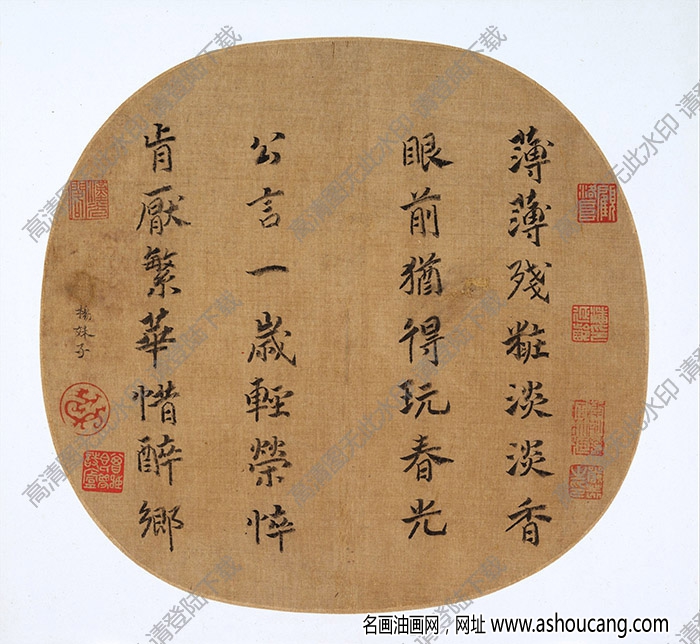 薄薄殘粧淡淡香
眼前猶得玩春光
公言一歲輕榮悴
肯厭繁華惜醉鄉
楊妹子
高清图无此水印 请登陆下载
名画油画网，网址 www.ashoucang.com